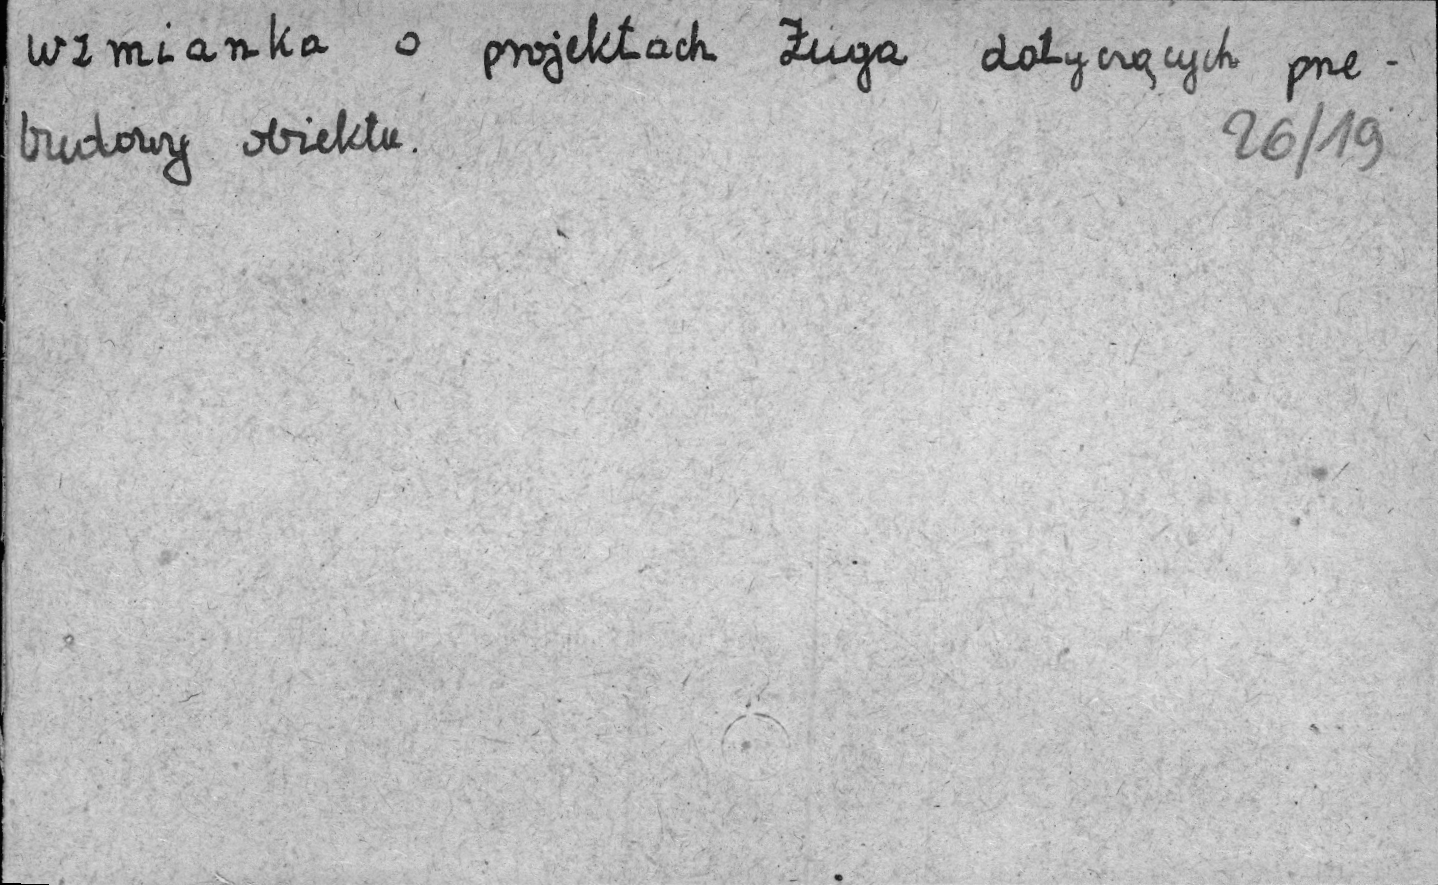 wzmianka o projektach Zuga dotyczących prze-
budowy obiektu.
26/19